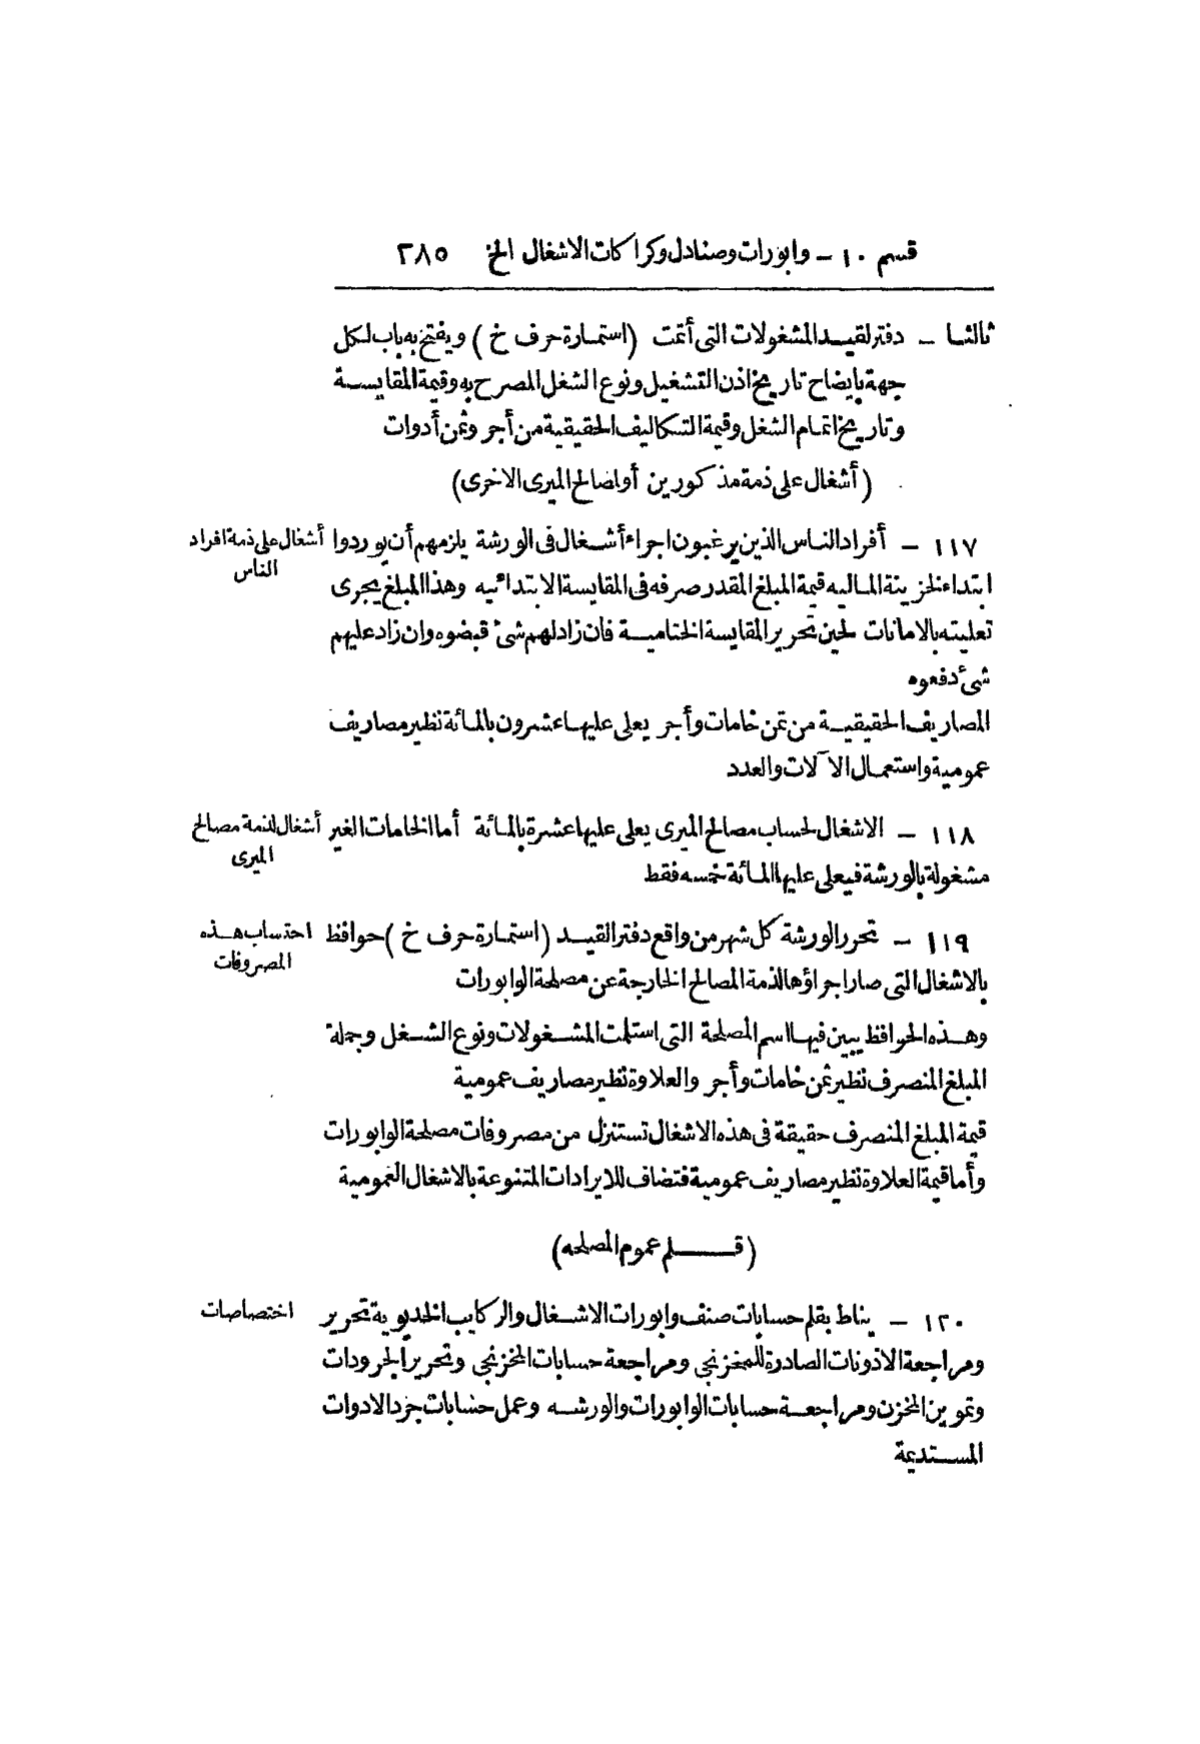 قسم ١٠ - وابورات وصنادل وكراكات الاشغال الخ ٢٨٥
ثالثا - دفتر لقيد المشغولات التى أتمت (استمارة حرف خ) ويفتح به باب لكل
جهة بايضاح تاريخ اذن التشغيل ونوع الشغل المصرح به وقيمة المقايسة
وتاريخ اتمام الشغل وقيمة التكاليف الحقيقية من أجر وثمن أدوات
(أشغال على ذمة مذكورين أو لصالح الميرى الاخرى)
١١٧ - أفراد الناس الذين يرغبون اجراء أشغال فى الورشة يلزمهم أن يوردوا
أشغال على ذمة افراد
الناس
ابتداء لخزينة المالية قيمة المبلغ المقدر صرفه فى المقايسة الابتدائيه وهذا المبلغ يجرى
تعليته بالامانات لحين تحرير المقايسة الختامية فان زاد لهم شئ قبضوه وان زاد عليهم
شئ دفعوه
المصاريف الحقيقية من ثمن خامات وأجر يعلى عليها عشرون بالمائة نظير مصاريف
عمومية واستعمال الآلات والعدد
١١٨ - الاشغال لحساب مصالح الميرى يعلى عليها عشرة بالمائة أما الخامات الغير
أشغال لذمة مصالح
الميرى
مشغولة بالورشة فيعلى عليها المائة خمسه فقط
١١٩ - تحرر الورشة كل شهر من واقع دفتر القيد (استمارة حرف خ) حوافظ
احتساب هذه
المصروفات
بالاشغال التى صار اجراؤها لذمة المصالح الخارجة عن مصلحة الوابورات
وهذه الحوافظ يبين فيها اسم المصلحة التى استلمت المشغولات ونوع الشغل وجملة
المبلغ المنصرف نظير ثمن خامات وأجر والعلاوة نظير مصاريف عمومية
قيمة المبلغ المنصرف حقيقة فى هذه الاشغال تستنزل من مصروفات مصلحة الوابورات
وأما قيمة العلاوة نظير مصاريف عمومية فتضاف للايرادات المتنوعة بالاشغال العمومية
(قلم عموم المصلحه)
١٢٠ - يناط بقلم حسابات صنف وابورات الاشغال والركايب الخديوية تحرير
اختصاصات
ومراجعة الاذونات الصادرة للمخزنجى ومراجعة حسابات المخزنجى وتحرير الجرودات
وتموين المخزن ومراجعة حسابات الوابورات والورشه وعمل حسابات جرد الادوات
المستديمة